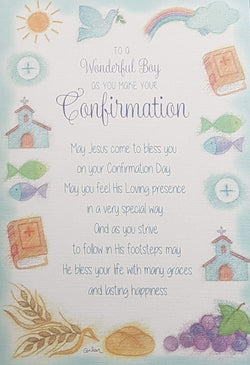 TO A
Wonderful Boy
AS YOU MAKE YOUR
Confirmation
May Jesus come to bless you
on your Confirmation Day.
May you feel His Loving presence
in a very special way.
And as you strive
to follow in His footsteps may
He bless your life with many graces
and lasting happiness.